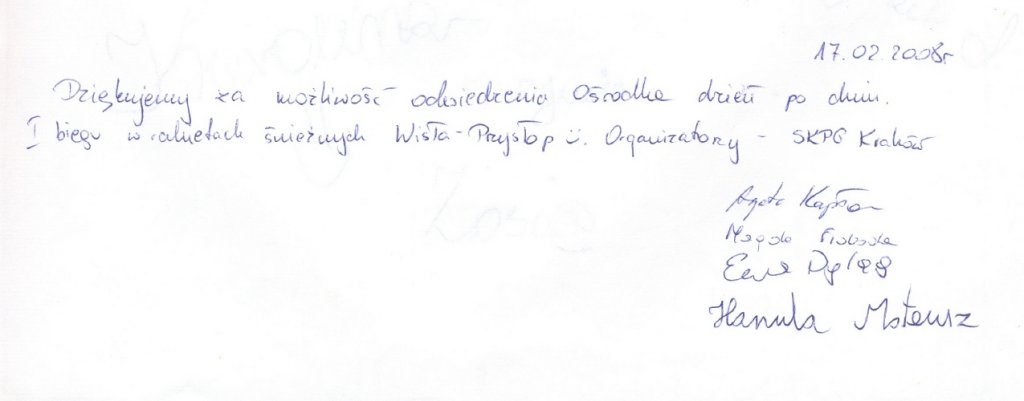 17.02.2008r
Dziękujemy za możliwość odwiedzenia Ośrodka dzień po dniu.
I biegu w rakietach śnieżnych Wisła-Przysłop ü. Organizatorzy - SKPG Kraków
Agata
Magda
Ewa
Hanula Mateusz